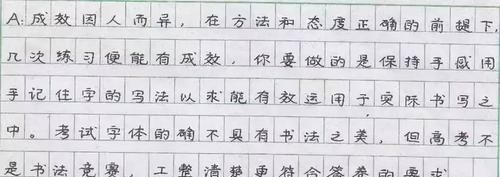 A:成效因人而异，在方法和态度正确的前提下，
几次练习便能有成效，你要做的是保持手感用
手记住字的写法以求能有效运用于实际书写之
中。考试字体的确不具有书法之美，但高考不
是书法竞赛，工整清楚更符合答卷的要求